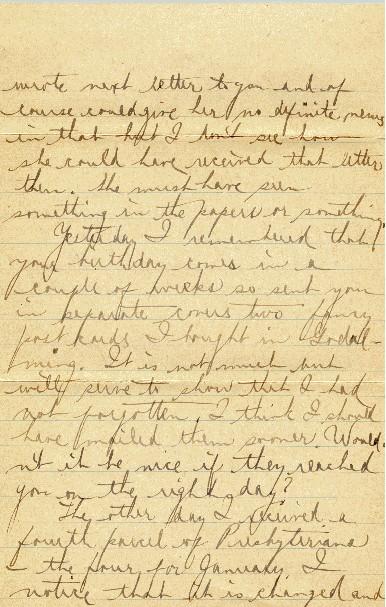 wrote next letter to you and of
course could give her no definite news
in that but I don't see how
she could have received that letter
then. She must have seen
something in the papers or something.
Yesterday I remembered that
your birthday comes in a
couple of weeks so sent you
in separate covers two fancy
post cards I bought in Godal-
ming. It is not much but
will serve to show that I had
not forgotten. I think I should
have mailed them sooner. Would-
n't it be nice if they reached
you on the right day?
The other day I received a
fourth parcel of Presbyterians
- the four for January. I
notice that it is changed and